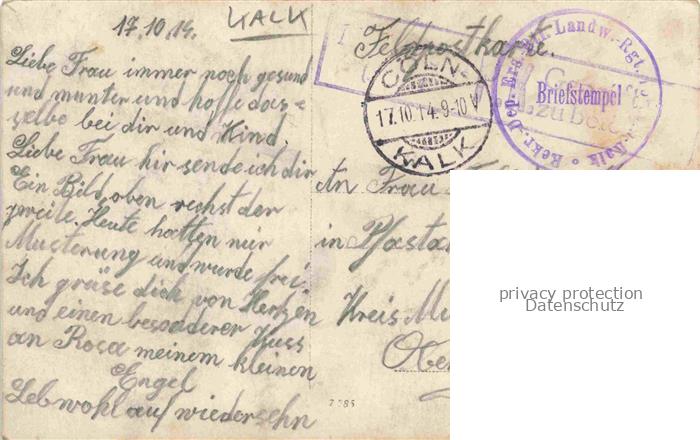 17.10.14.
KALK
Feldpostkarte.
CÖLN-
17.10.14.9-10V
KALK
Landw.-Rgt.
Briefstempel
Liebe Frau immer noch gesund
und munter und hoffe das=
selbe bei dir und Kind.
Liebe Frau hir sende ich dir
Ein Bild, oben rechst der
zweite. Heute hatten mir
Musterung und wurde frei.
Ich grüse dich von Hertzen
und einen besonderer Kuss
an Rosa meinem kleinen
Engel
Lebwohl auf wiedersehn
An Frau
in Pfasta
Kreis Mü
Obe
7785
privacy protection
Datenschutz